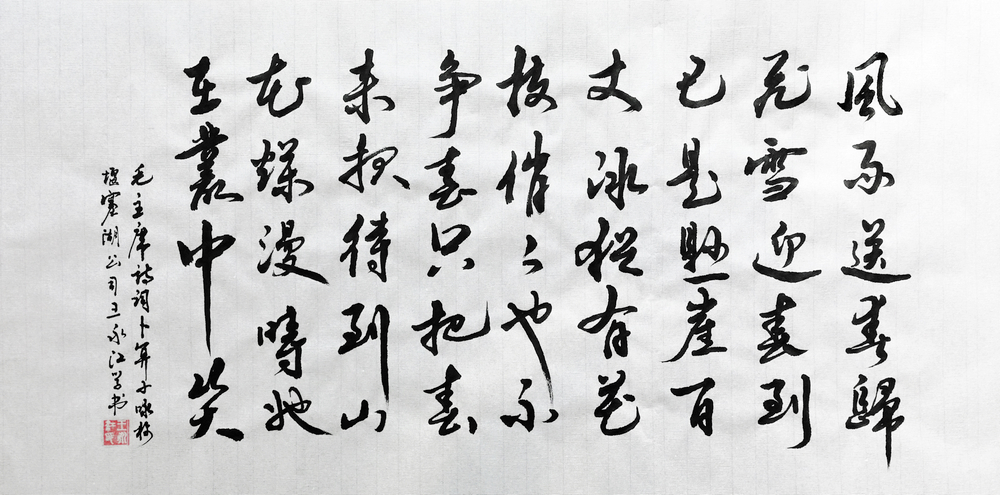 風雨送春歸
飛雪迎春到
已是懸崖百
丈冰猶有花
枝俏々也不
争春只把春
来报待到山
花爛漫時她
在叢中笑
毛主席诗词卜算子咏梅
湖公司王永江学书